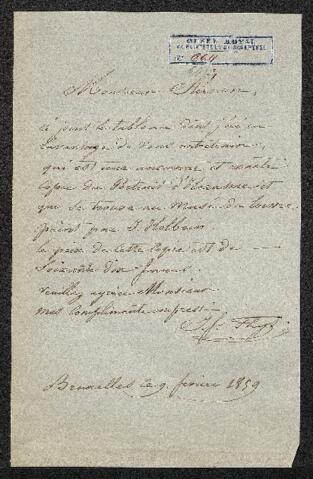 MUSÉE ROYAL
N° 664
Monsieur
ci joint le tableau dont j'ai eu
l'avantage de vous entretenir,
qui est une ancienne et exacte
copie du Portrait d'Erasme et
qui se trouve au Musée du Louvre
peint par J. Holbein.
le prix de cette copie est de
Soixante dix francs.
Veuillez agréer Monsieur
mes compliments empressés
Bruxelles le 9. février 1859